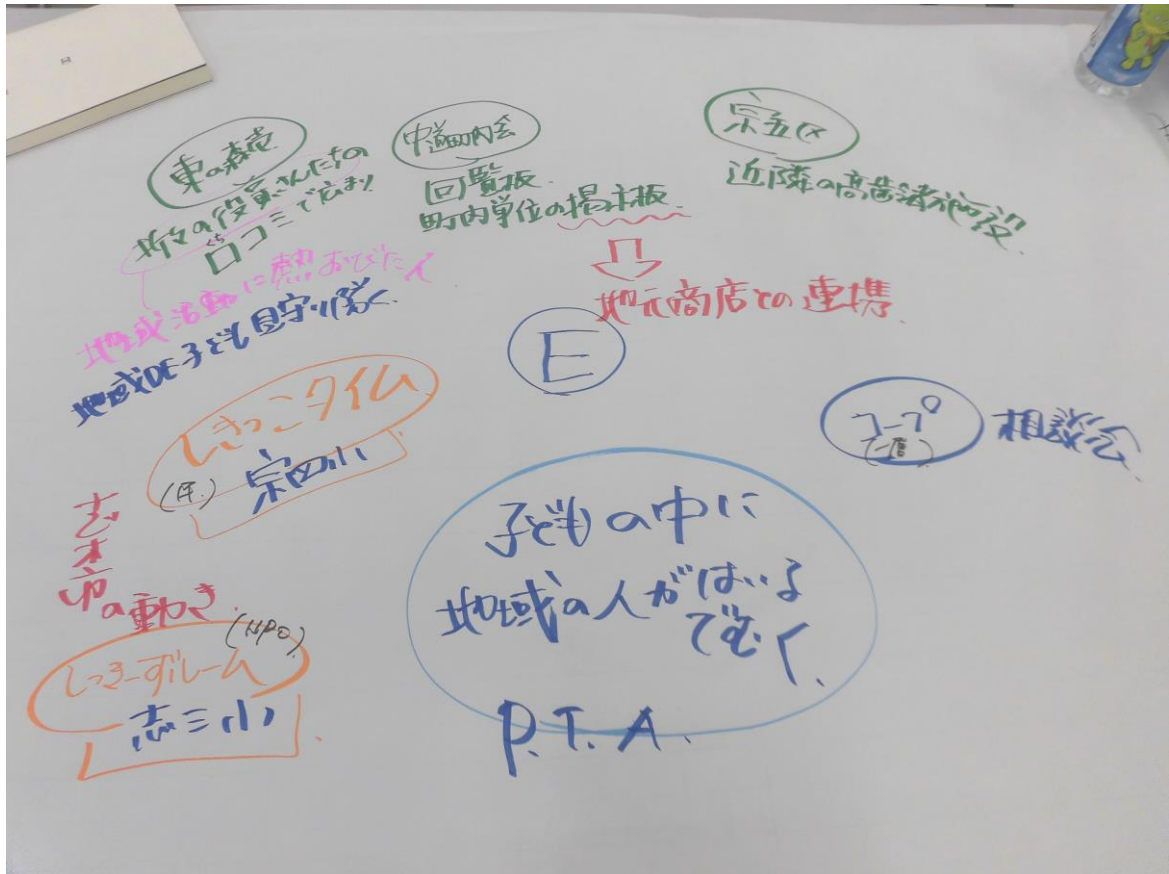 東の森壱
折々の役員さんたちの
口コミで広まり
ぐち
地域活動に熱おびた人
地域DE子ども見守り隊く.
中道町内会
回覧板.
町内単位の掲示板.
⇩
地元商店との連携.
宗五区
近隣の高齢者施設.
E
コープ
相談会
しきっこタイム
宗四小
しき市の動き.
(NPO)
しっきーずルーム
志三小
子どもの中に
地域の人がはいる
でむく.
P.T.A.